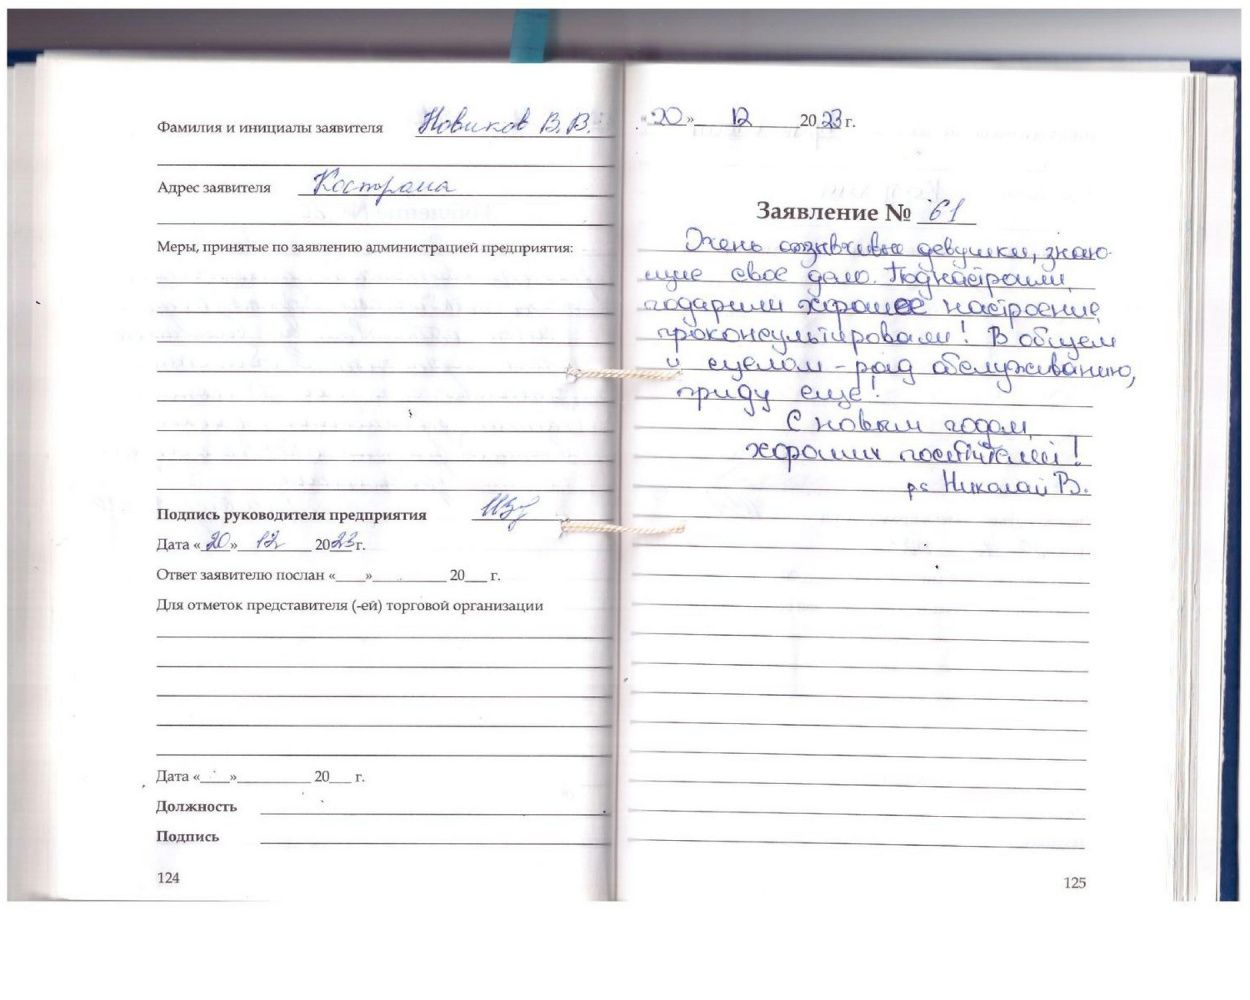 Фамилия и инициалы заявителя Новиков В.В.
Адрес заявителя Кострома
Меры, принятые по заявлению администрацией предприятия:
Подпись руководителя предприятия
Дата «20» 12 2023г.
Ответ заявителю послан «___»_________ 20___ г.
Для отметок представителя (-ей) торговой организации
Дата «___»_________ 20___ г.
Должность
Подпись
124
«20» 12 2023 г.
Заявление № 61
Очень отзывчивые девушки, знаю-
щие свое дело. Поднастроили,
подарили хорошее настроение,
проконсультировали! В общем
и целом - рад обслуживанию,
приду еще!
С новым годом,
хороших посетителей!
Николай В.
125